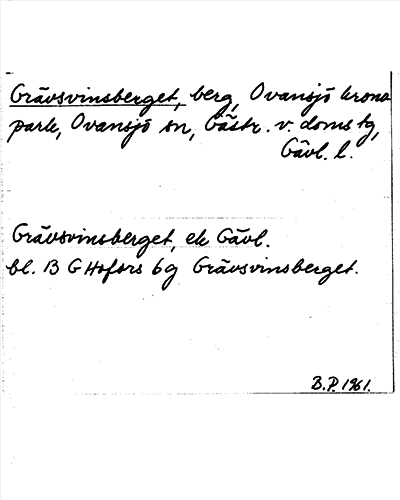 Grävsvinsberget, berg, Ovansjö krono
park, Ovansjö sn, Gästr. v. doms tg,
Gävl. l.
Grävsvinsberget, ek Gävl.
bl. 13 G Hofors 6g Grävsvinsberget.
B.P. 1961.